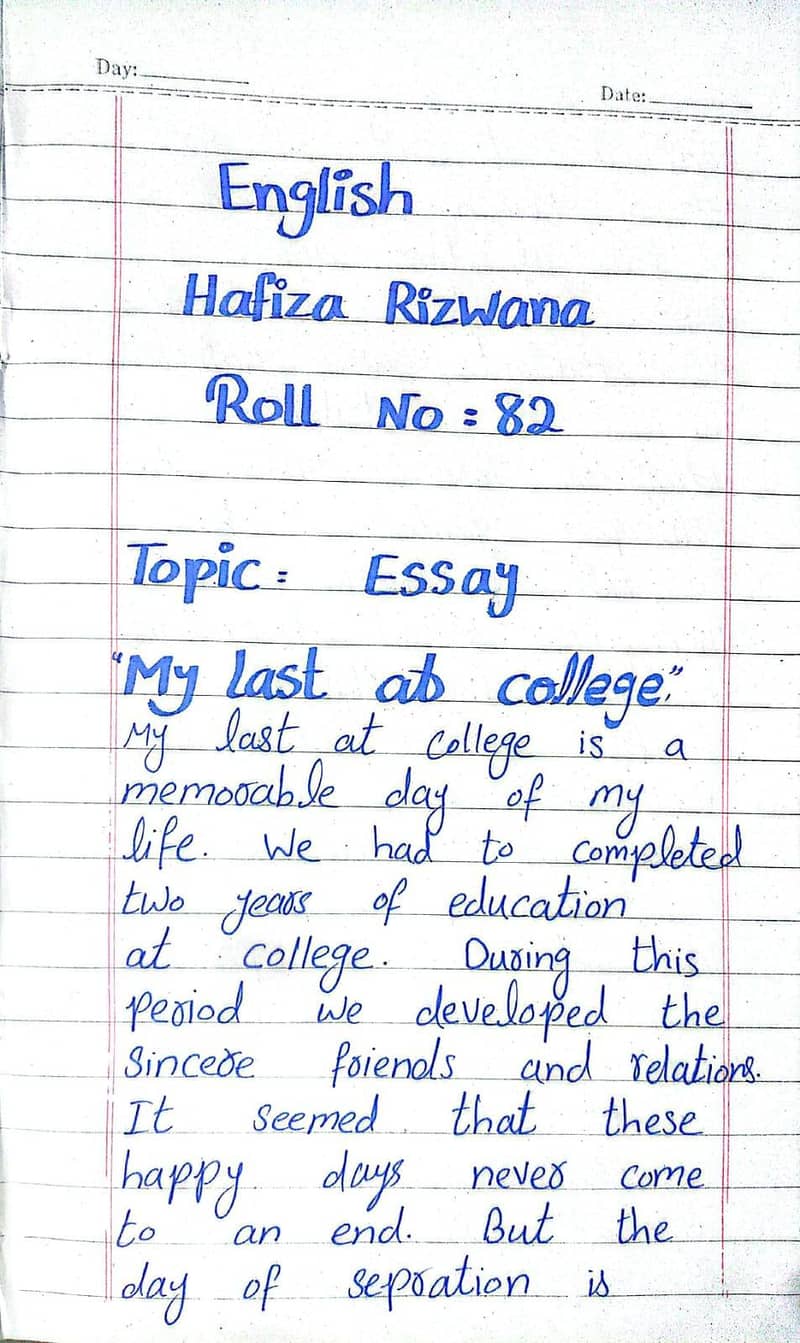 Day:
Date:
English
Hafiza Rizwana
Roll No : 82
Topic : Essay
"My last at college."
My last at college is a
memorable day of my
life. We had to completed
two years of education
at college. During this
period we developed the
Sincere friends and relations.
It seemed that these
happy days never come
to an end. But the
day of sepration is